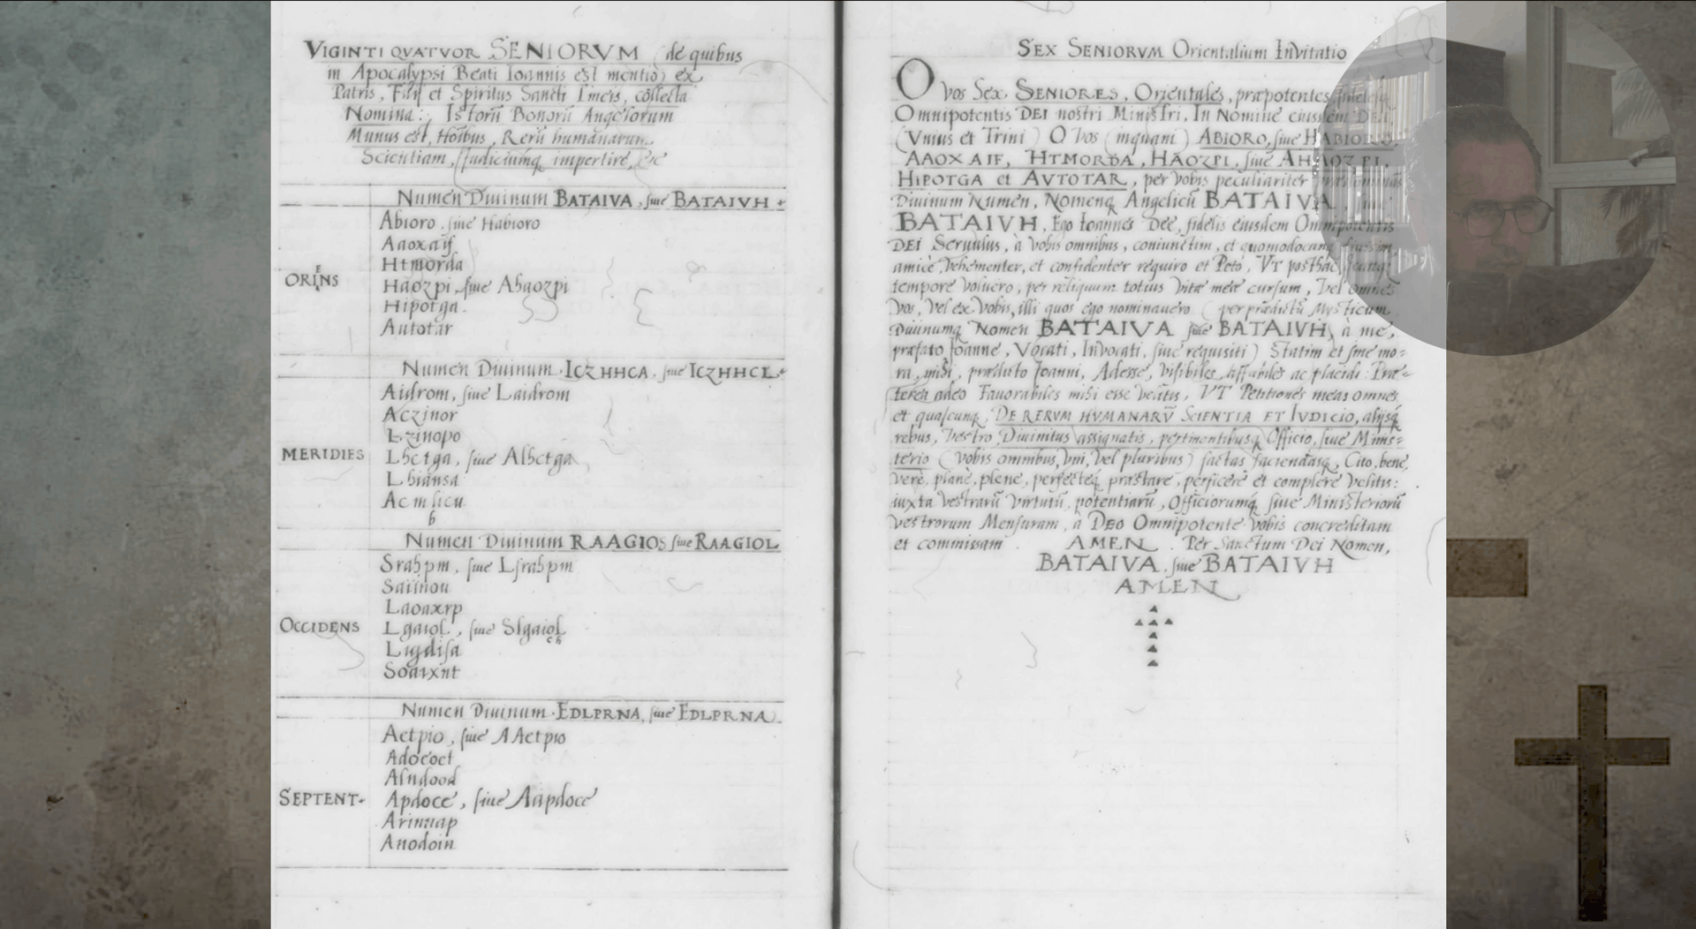 VIGINTI QVATVOR SENIORVM (de quibus
in Apocalypsi Beati Ioannis est mentio) ex
Patris, Filij et Spiritus Sancti Lineis, collecta
Nomina: Istorū Bonorū Angelorum
Munus est, Hoībus, Rerū humanarum
Scientiam, Iudiciumq impertire, etc
Numen Diuinum BATAIVA, siue BATAIVH
Abioro, siue Habioro
Aaoxaif
Htmorda
ORIENS
Haozpi, siue Ahaozpi
Hipotga
Autotar
Numen Diuinum ICZHHCA, siue ICZHHCL
Aidrom, siue Laidrom
Aczinor
Lzinopo
MERIDIES
Lhctga, siue Alhctga
Lhiansa
Acmlicu
b
Numen Diuinum RAAGIOS siue RAAGIOL
Srahpm, siue Lsrahpm
Saiinou
Laoaxrp
OCCIDENS
Lgaiol, siue Slgaiol
Ligdisa
Soaixnt
Numen Diuinum EDLPRNA, siue EDLPRNA
Aetpio, siue AAetpio
Adoeoet
Alndood
SEPTENT
Apdoce, siue Aapdoce
Arinnap
Anodoin
SEX SENIORVM Orientalium Inuitatio
O vos Sex, SENIORES, Orientales, præpotentes,
Omnipotentis DEI nostri Ministri, In Nomine eiusdem DEI,
(Vnius et Trini) O vos (inquam) ABIORO, siue HABIORO,
AAOXAIF, HTMORDA, HAOZPI, siue AHAOZPI,
HIPOTGA et AVTOTAR, per vobis peculiariter
Diuinum Numen, Nomenq Angelicū BATAIVA
BATAIVH, Ego Ioannes Dee, fidelis eiusdem Omnipotentis
DEI Seruulus, a vobis omnibus, coniunctim, et quomodocunq
amice, vehementer, et confidenter requiro et Peto, VT posthac
tempore voluero, per reliquum totius vitæ meæ cursum, vel omnes
vos, vel ex vobis, illi quos ego nominauero (per prædictū Mysticum
Diuinumq Nomen BATAIVA siue BATAIVH, a me,
præfato Ioanne, Vocati, Inuocati, siue requisiti) Statim et sine mo=
ra, mihi, prædicto Ioanni, Adesse, visibiles, affabiles ac placidi: Præ=
terea adeo Fauorabiles mihi esse velitis, VT Petitiones meas omnes
et quascunq, DE RERVM HVMANARV̄ SCIENTIA ET IVDICIO, alijsq
rebus, vestro Diuinitus assignatis, pertinentibusq Officio, siue Minis=
terio (vobis omnibus, vni, vel pluribus) factas faciendasq, Cito, bene,
vere, plane, plene, perfecteq præstare, perficere et complere velitis:
iuxta vestrarū virtutū, potentiarū, Officiorumq siue Ministeriorū
vestrorum Mensuram, a DEO Omnipotente vobis concreditam
et commissam. AMEN. Per Sanctum Dei Nomen,
BATAIVA, siue BATAIVH
AMEN